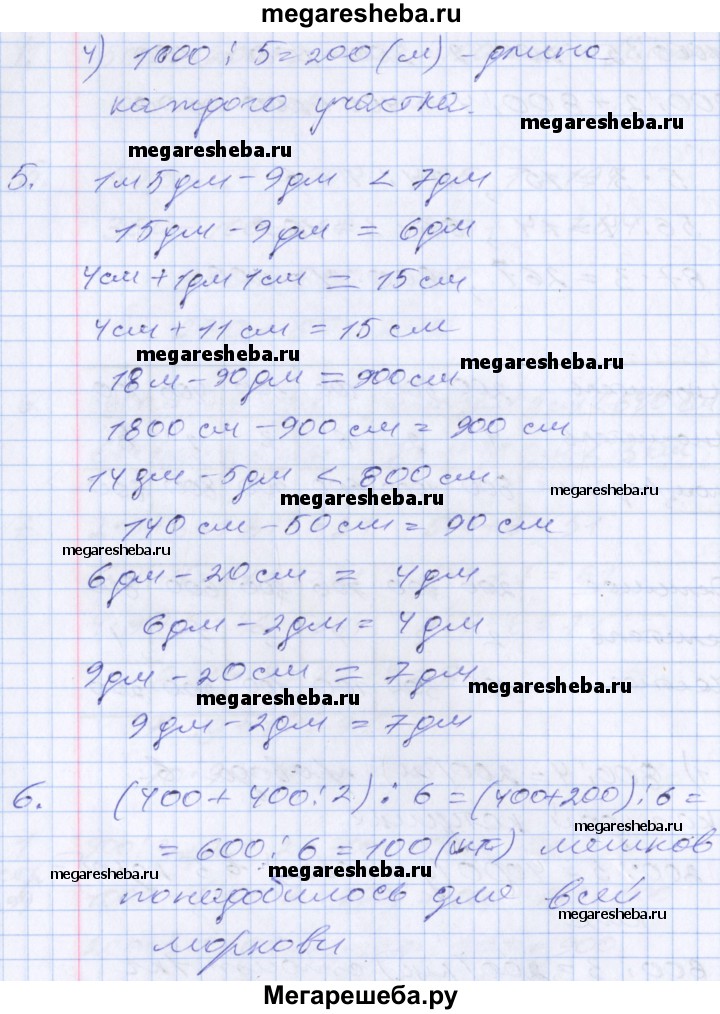 megaresheba.ru
4) 1000 : 5 = 200 (м) - длина
каждого участка.
megaresheba.ru
megaresheba.ru
5. 1м 5дм - 9дм < 7дм
15дм - 9дм = 6дм
4см + 1дм 1см = 15см
4см + 11см = 15см
megaresheba.ru
megaresheba.ru
18м - 90дм = 900см
1800см - 900см = 900см
14дм - 5дм < 800см
megaresheba.ru
megaresheba.ru
140см - 50см = 90см
megaresheba.ru
6дм - 20см = 4дм
6дм - 2дм = 4дм
9дм - 20см = 7дм
megaresheba.ru
megaresheba.ru
9дм - 2дм = 7дм
6. (400 + 400 : 2) : 6 = (400+200) : 6 =
megaresheba.ru
= 600 : 6 = 100 (шт) мешков
megaresheba.ru
megaresheba.ru
понадобилось для всей
megaresheba.ru
моркови
Мегарешеба.ру